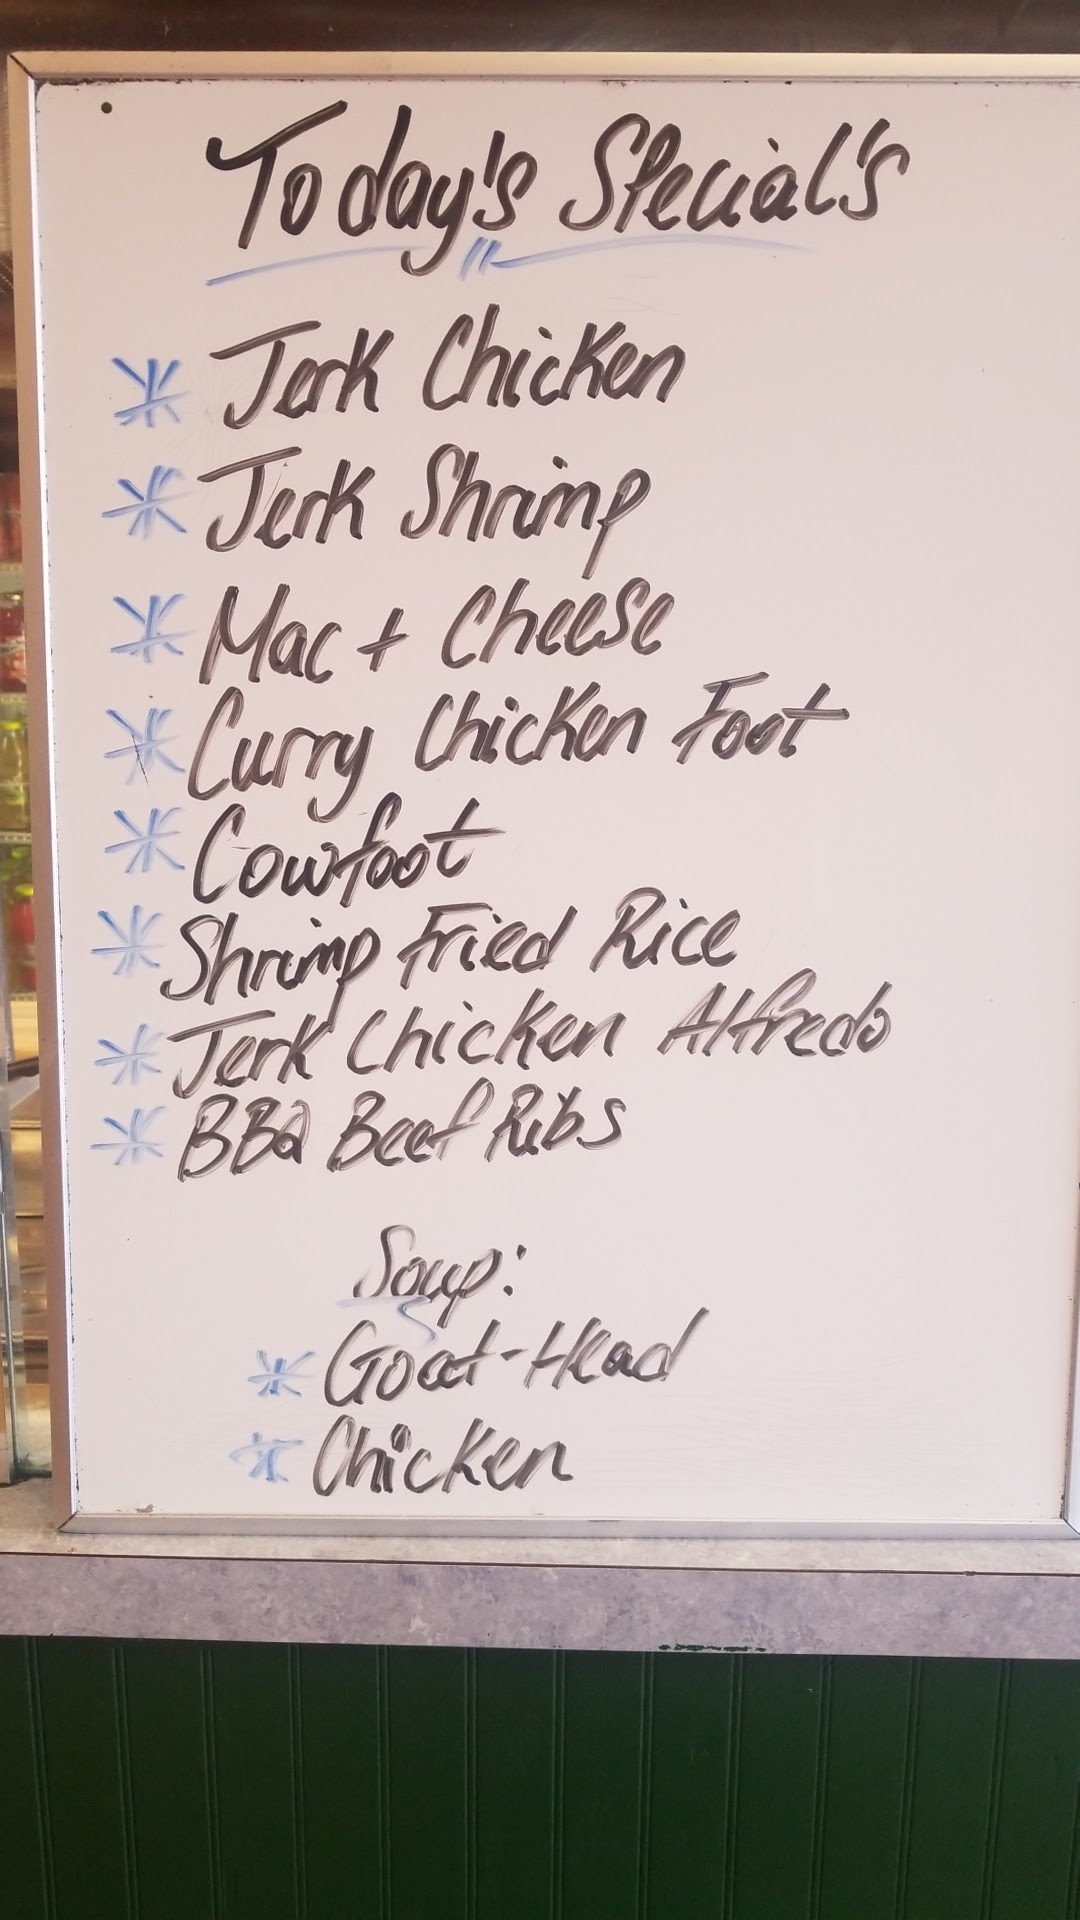 Today's Special's
* Jerk Chicken
* Jerk Shrimp
* Mac + Cheese
* Curry Chicken Foot
* Cowfoot
* Shrimp Fried Rice
* Jerk Chicken Alfredo
* BBQ Beef Ribs
Soup:
* Goat-Head
* Chicken